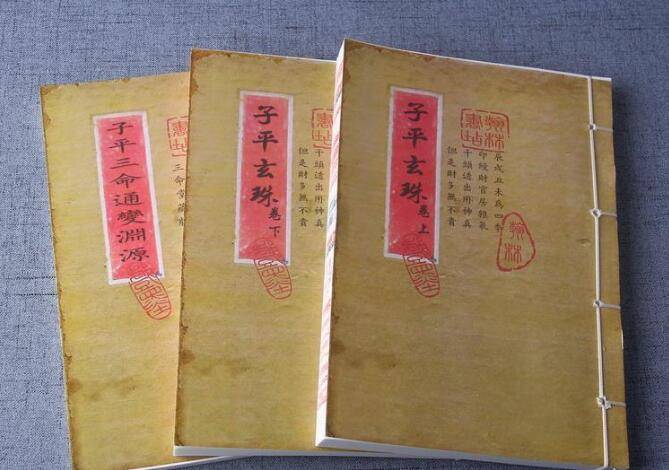 子平玄珠 卷上
辰戌丑未為四季
印綬財官居雜氣
干頭透出用神真
但是財多無不貴
翰林
子平玄珠 卷下
干頭透出用神真
但是財多無不貴
子平三命通變淵源